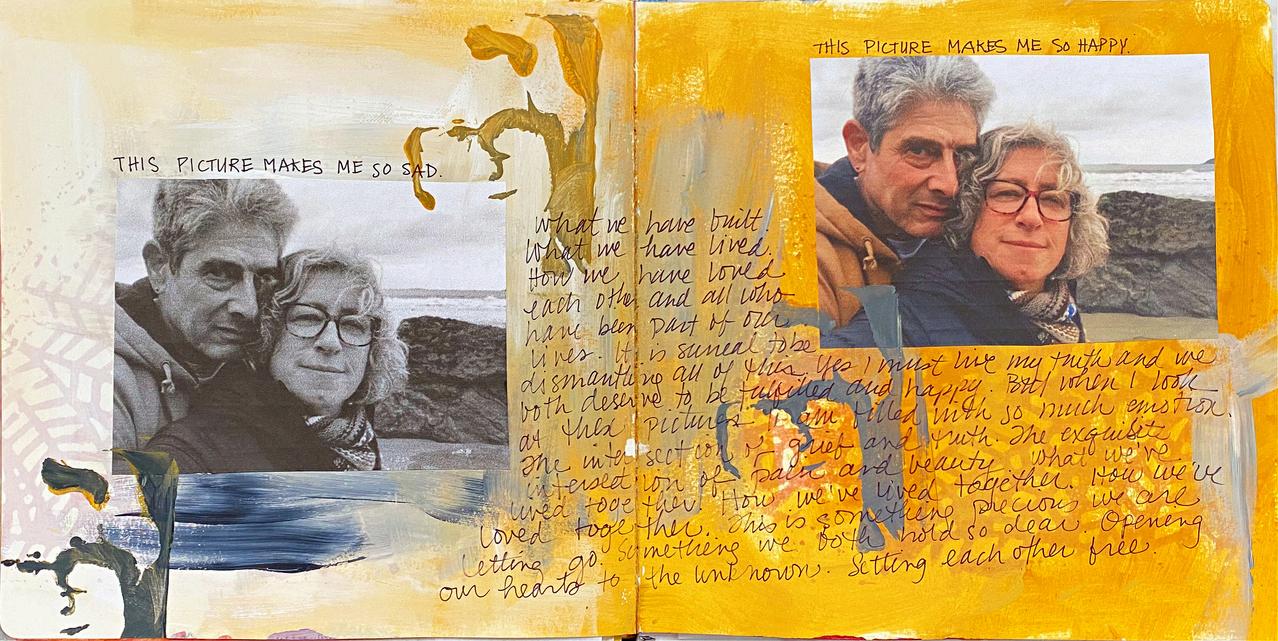 THIS PICTURE MAKES ME SO SAD.
THIS PICTURE MAKES ME SO HAPPY.
What we have built
What we have lived.
How we have loved
each other and all who
have been part of our
lives. It is surreal to be
dismantling all of this. Yes I must live my truth and we
both deserve to be fulfilled and happy. But when I look
at these pictures I am filled with so much emotion.
The intersection of grief and truth. The exquisite
intersection of pain and beauty. What we've
lived together. How we've lived together. How we've
loved together. This is something precious we are
letting go. Something we both hold so dear. Opening
our hearts to the unknown. Setting each other free.